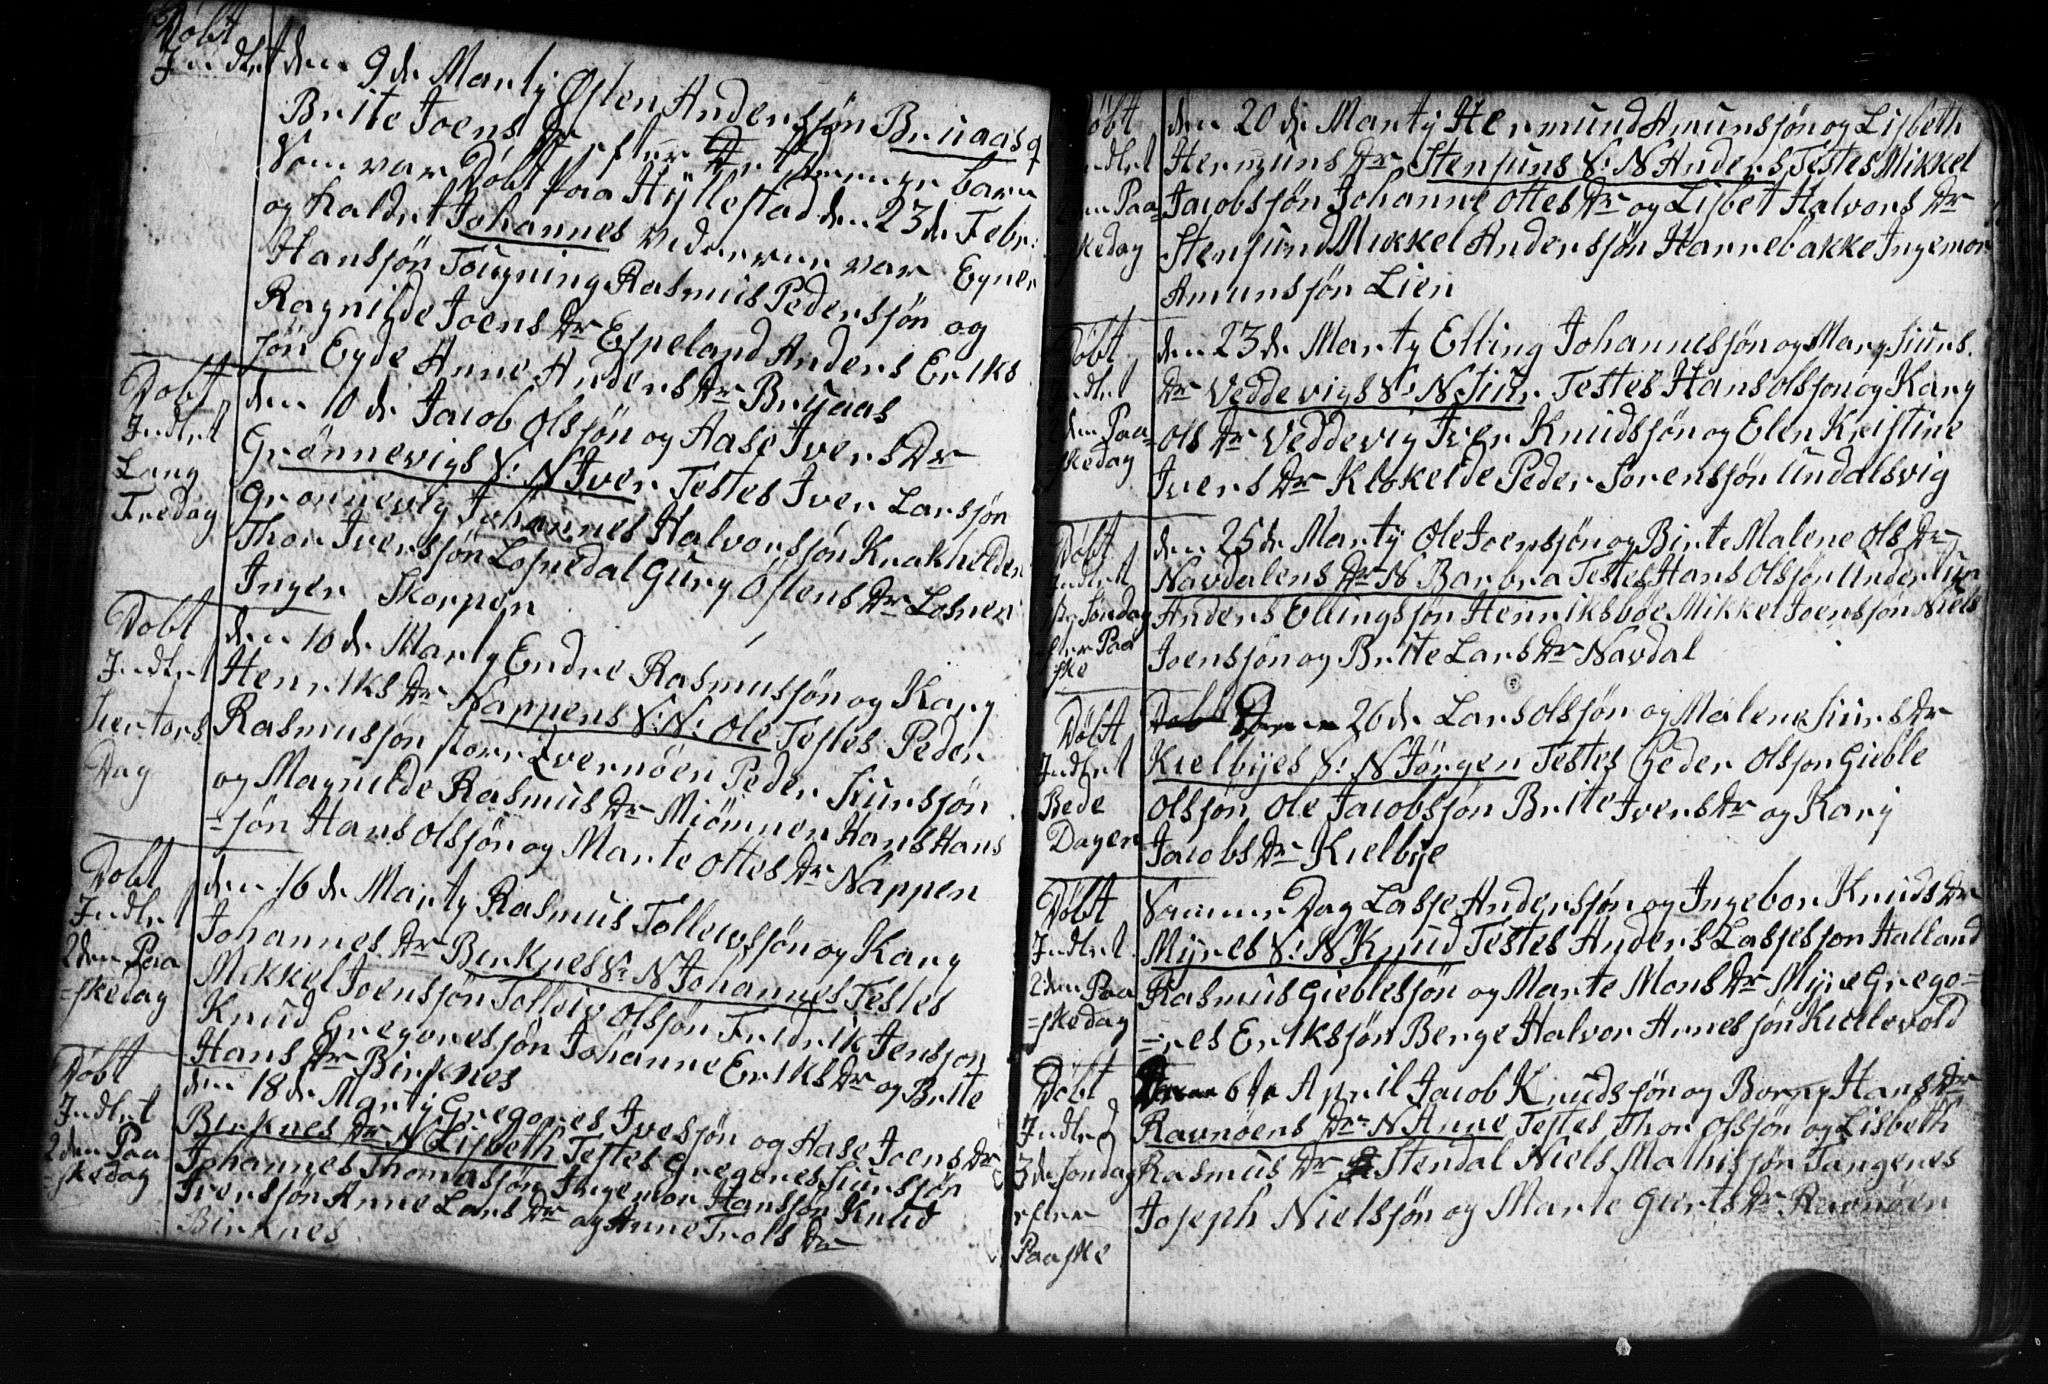 Døbt
Indlet den 9de Marty Østen Andersjøn Bruaas og
Brite Joens Dr
Som var Døbt paa Hyllestad den 23de Febr:
og kaldet Johannes var Eyner
Hansjøn Tougning Rasmus Pedersjøn og
Ragnilde Joens Dr Espeland Anders Eriks
sjøn Eyde Anne Anders Dr Bruaas
Døbt
Indlet
Lang
Fredag
den 10de Jacob Olsjøn og Aase Ivers Dr
Grønnevigs S: N Iver Testes Iver Larsjøn
Grønnevig Johannes Halvorsjøn Knakhelden
Thor Iversjøn Losnedal Gury Østens Dr Losnen
Inger Skorpen
Døbt
Indlet
Dag
den 10de Marty Endre Rasmusjøn og Kary
Henriks Dr Nappens S: N: Ole Testes Peder
Rasmusjøn Peder Siursjøn
og Magnilde Rasmus Dr Miömnen Hans Hans
=sjøn Hans Olsjøn og Marte Ottes Dr Nappen
Døbt
Indlet
2den Paa
=skedag
den 16de Marty Rasmus Tollevsjøn og Kary
Johannes Dr Birknes S: N Johannes Testes
Mikkel Joensjøn Tolleiv Olsjøn Fridrik Jensjøn
Knud Gregoresjøn Johanne Eriks Dr og Brite
Hans Dr Birknes
Døbt
Indlet
2den Paa
=skedag
den 18de Marty Gregores Ivesjøn og Aase Joens Dr
Birknes Dr N Lisbeth Testes Gregores Siursjøn
Johannes Thomasjøn Ingemor Hansjøn Knud
Iversjøn Anne Lars Dr og Anne Trols Dr
Birknes
Døbt
Indlet
2den Paa=
=skedag
den 20de Marty Hermund Amunsjøn og Lisbeth
Hermuns Dr Stensuns S: N Anders Testes Mikkel
Jacobsjøn Johanne Ottes Dr og Lisbet Halvors Dr
Stensund Mikkel Andersjøn Harrebakke Ingemor
Amunsjøn Lien
Døbt
Indlet
2den Paa=
=skedag
den 23de Marty Elling Johannesjøn og Mary Siurs
Dr Veddevigs S: N Siur Testes Hans Olsjøn og Kary
Ols Dr Veddevig Iver Knudsjøn og Elen Kristine
Ivers Dr Klokelde Peder Sørensjøn Undalsvig
Døbt
Indlet
Søndag
efter Paa
ske
den 25de Marty Ole Joensjøn og Birte Malene Ols Dr
Navdalens Dr N Barbra Testes Hans Olsjøn Underlien
Anders Ellingsjøn Henriksbøe Mikkel Joensjøn Niels
Joensjøn og Brite Lars Dr Navdal
Døbt
Indlet
Bede
Dagen
26de Lars Olsjøn og Malene Siurs Dr
Kielbyes S: N Jörgen Testes Peder Olsjøn Gieble
Olsjøn Ole Jacobsjøn Brite Ivers Dr og Kary
Jacobs Dr Kielbye
Døbt
Indlet
2den Paa
=skedag
Sommer Dag Lasse Andersjøn og Ingebor Knuds Dr
Myres S: N Knud Testes Anders Lassesjøn Halland
Rasmus Gieblesjøn og Marte Mons Dr Myre Grego=
=res Eriksjøn Berge Halvor Arnesjøn Kiellevold
Døbt
Indlet
3de Søndag
efter
Paaske
6te April Jacob Knudsjøn og Borny Hans Dr
Ravnøens Dr N Anne Testes Thor Olsjøn og Lisbeth
Rasmus Dr Stendal Niels Mathisjøn Tangenes
Joseph Nielsjøn og Marte Gierts Dr Ravnøen